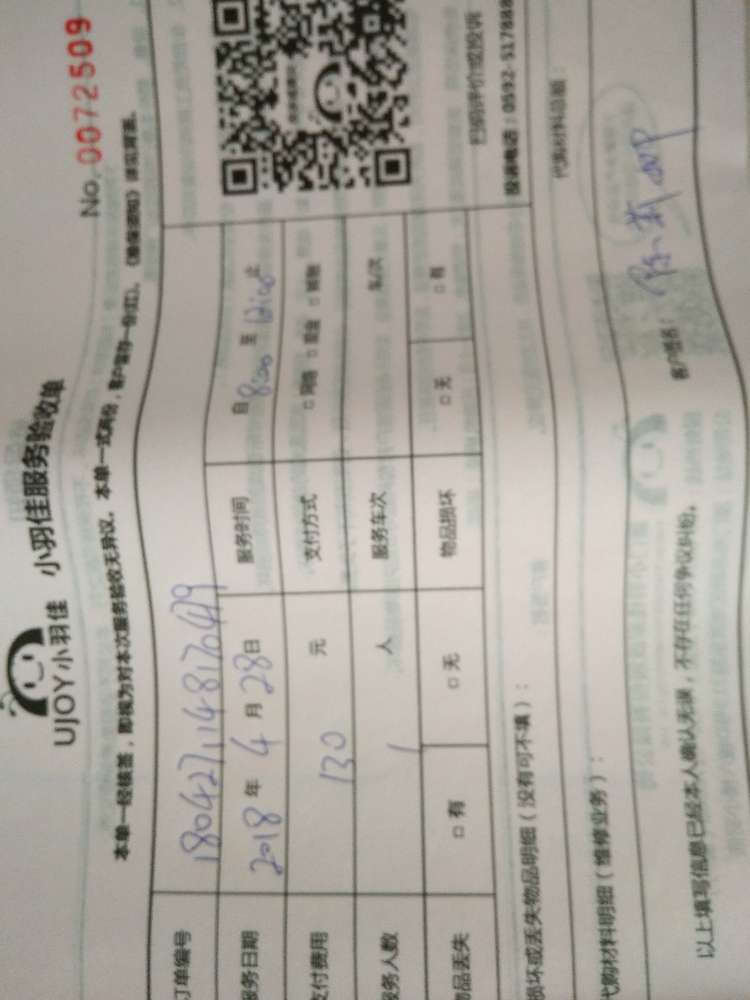 No. 0072509
UJOY小羽佳 小羽佳服务验收单
本单一经核签，即视为对本次服务验收无异议。本单一式两份，客户留存一份(红)。《维保须知》详见背面。
订单编号
服务日期 2018 年 4 月 28 日 服务时间 自 8:00 至 12:00 止
支付费用 130 元 支付方式 □ 网络 □ 现金 □ 转账
服务人数 1 人 服务车次 车/次
物品丢失 □ 有 □ 无 物品损坏 □ 无 □ 有
扫码评价或投诉
损坏或丢失物品明细（没有可不填）：
投诉电话：0592-517888
代购材料明细（维修业务）：
代购材料总额：
以上填写信息已经本人确认无误，不存在任何争议纠纷。
客户签名：